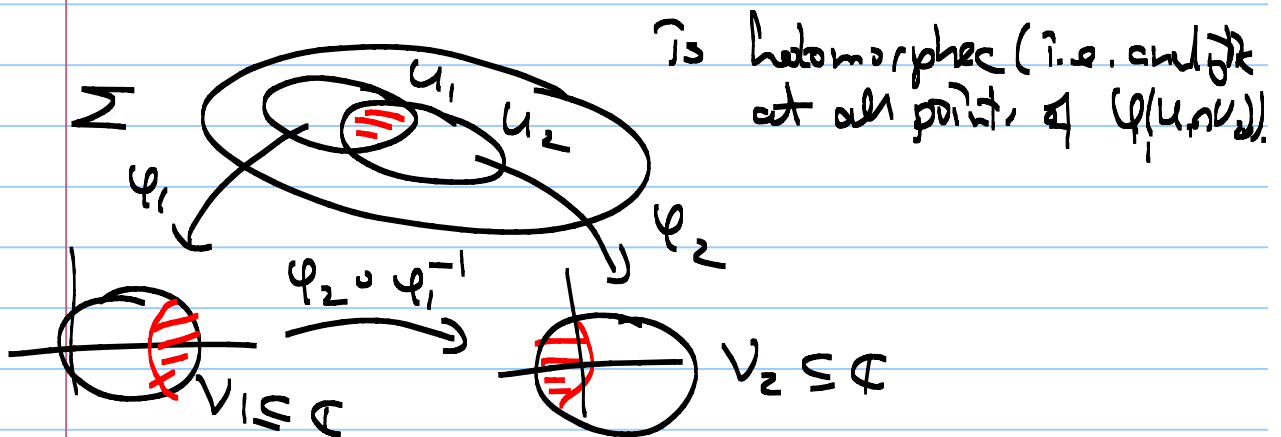 Is holomorphic (i.e. analytic
at all points of φ₁(U₁∩U₂)).
Σ
U₁
U₂
φ₁
φ₂
φ₂ ∘ φ₁⁻¹
V₁ ⊆ ℂ
V₂ ⊆ ℂ